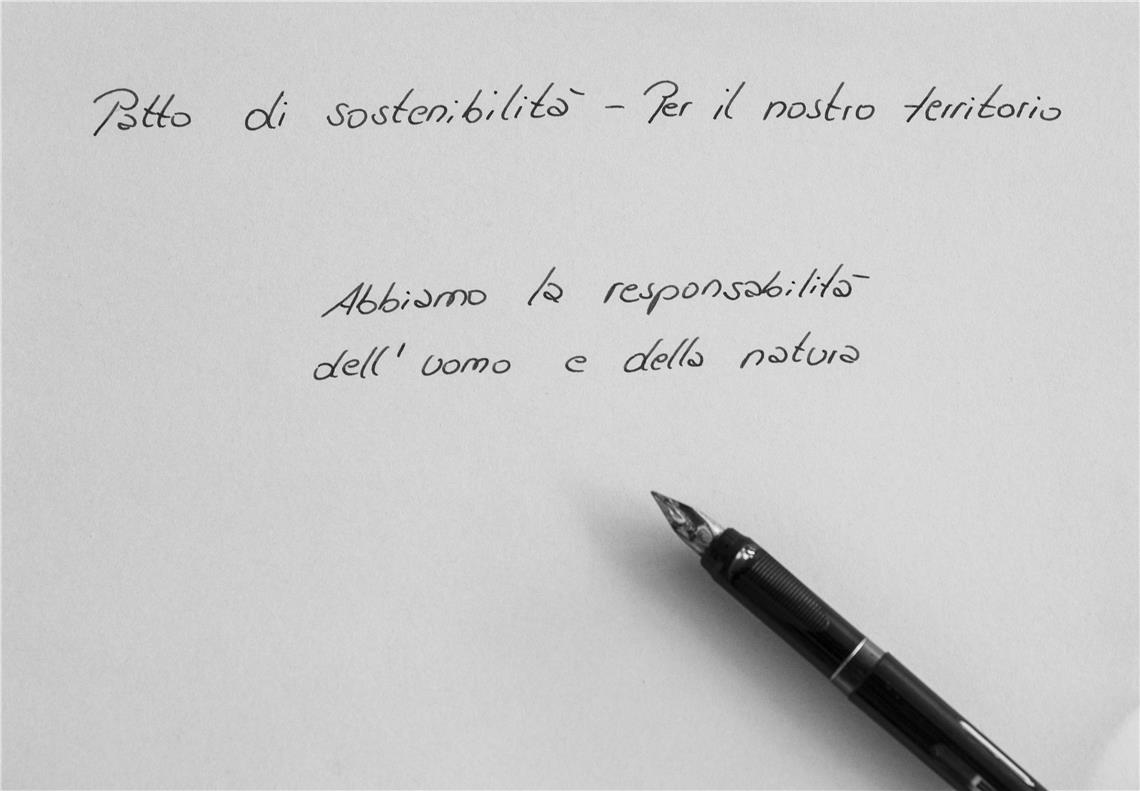 Patto di sostenibilità - Per il nostro territorio
Abbiamo la responsabilità
dell' uomo e della natura